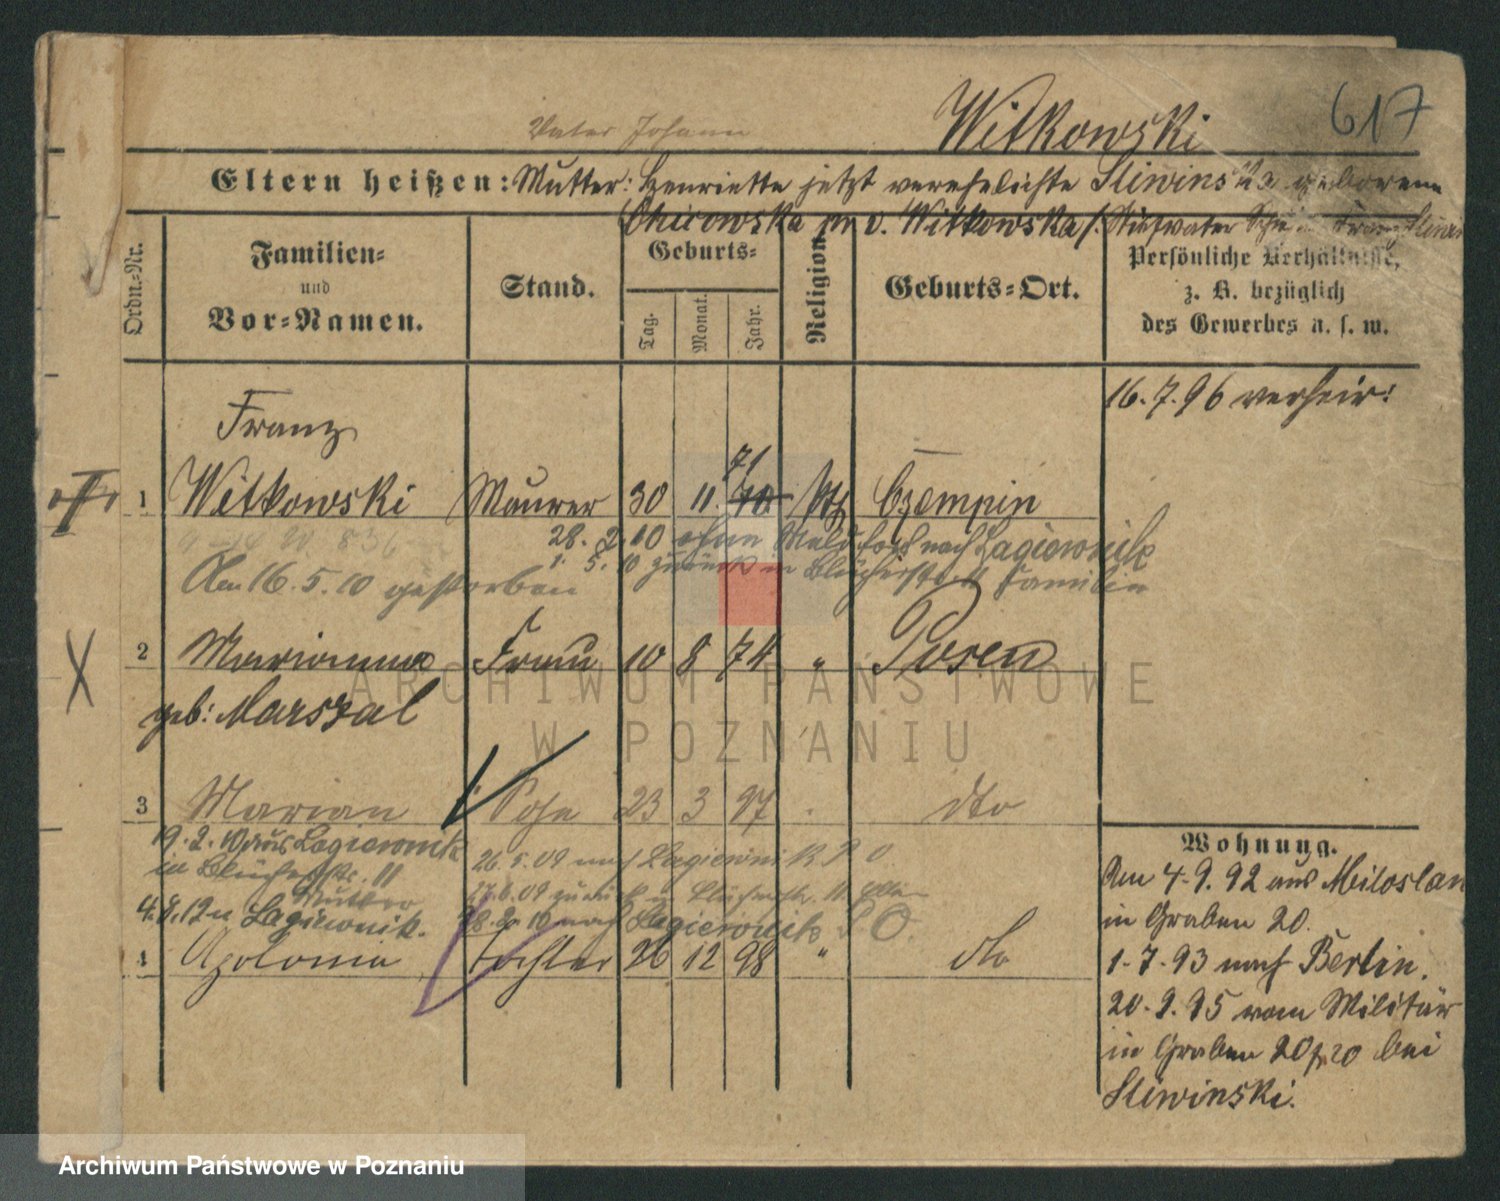 617
Witkowski
Vater Johann
Eltern heißen: Mutter: Henriette jetzt verehelichte Sliwinska geborene
Chirowska pr. v. Witkowska/. Stiefvater Franz
Ordn.-Nr.
Familien-
und
Vor-Namen.
Stand.
Geburts-
Tag.
Monat.
Jahr.
Religion
Geburts-Ort.
Persönliche Verhältnisse,
z. B. bezüglich
des Gewerbes u. s. w.
16.7.96 verheir:
Franz
71
1 Witkowski Maurer 30 11. 70. kth Czempin
28. 2. 10 ohne Meld. nach Lagiewnik
1. 5. 10 zurück in Blücherstr. 11 Familie
Am 16. 5. 10 gestorben
2 Marianna Frau 10 8 74 " Posen
geb: Marszal
3 Marian Sohn 23 3 97 dto
19. 2. 10 aus Lagiewnik
in Blücherstr. 11
Mutter
4. 9. 12 n Lagiewnik.
26. 5. 09 nach Lagiewnik
27. 6. 09 zurück n Blücherstr. 11
28. 2. 10 nach Lagiewnik O.
4 Apolonia Tochter 26 12 98 " dto
Wohnung.
Am 4.9.92 aus Miloslaw
in Graben 20.
1.7.93 nach Berlin.
20.9.95 vom Militär
in Graben 20 bei
Sliwinski.
ARCHIWUM PAŃSTWOWE
W POZNANIU
Archiwum Państwowe w Poznaniu